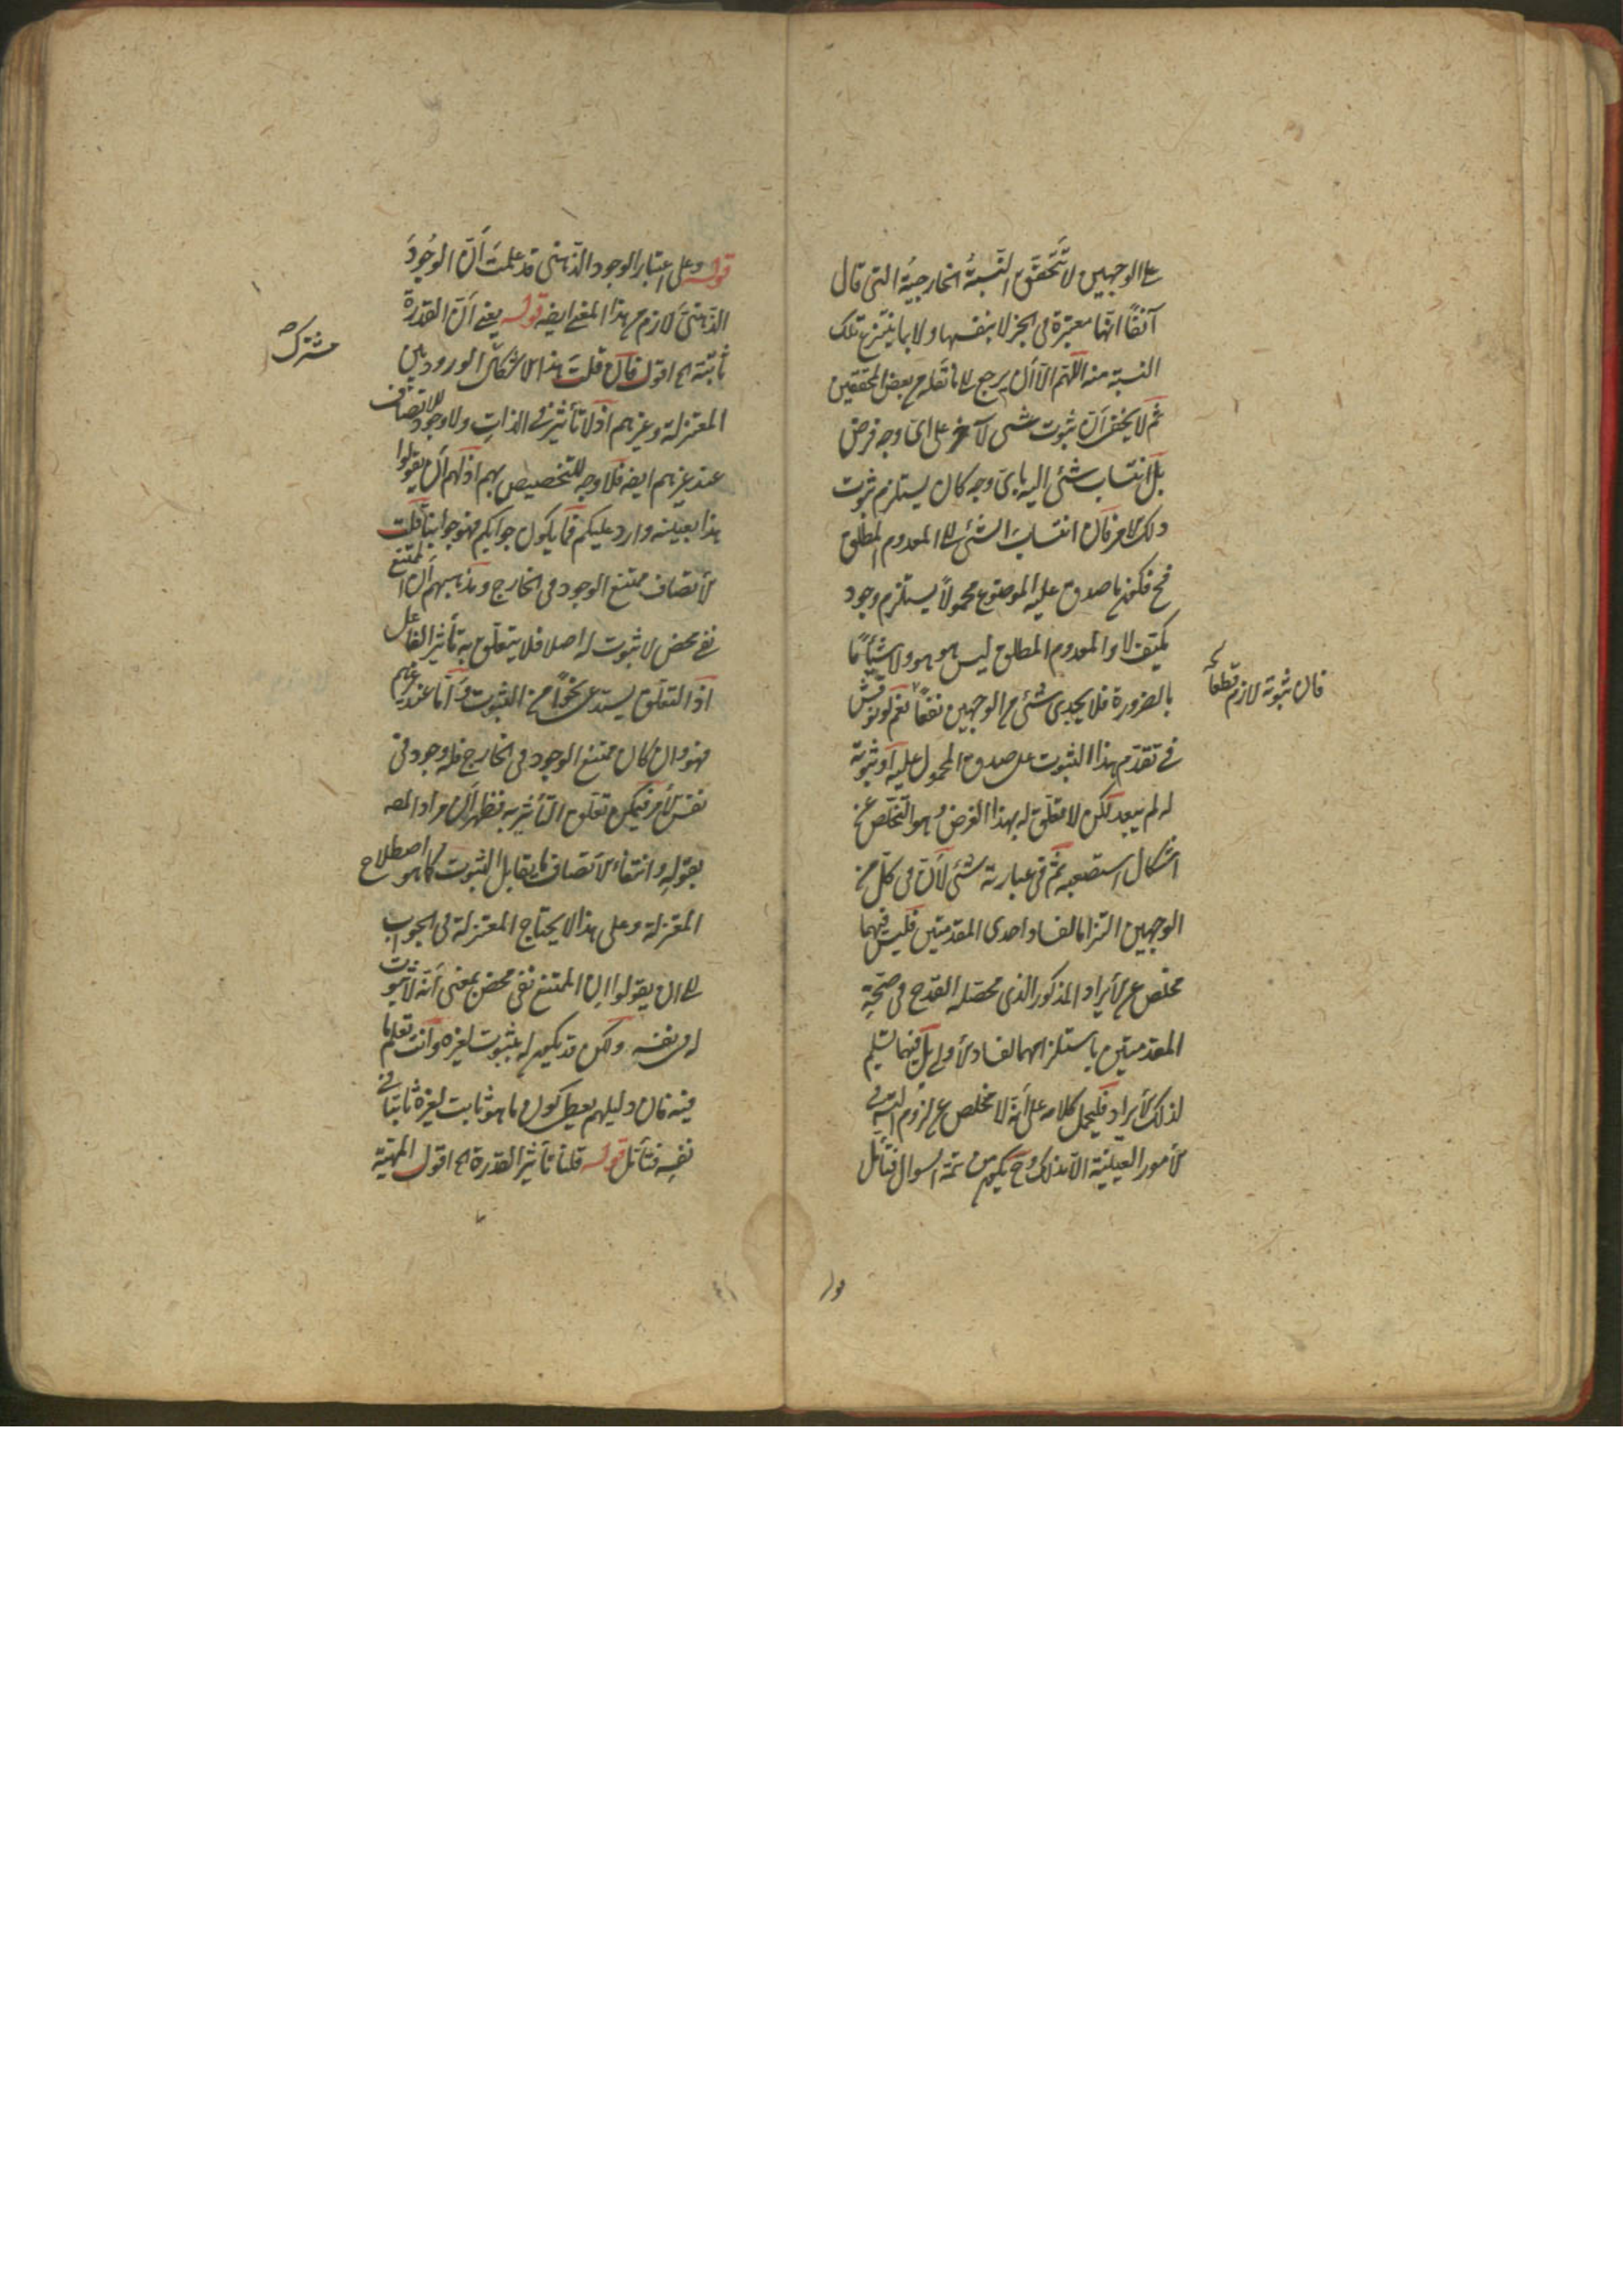 على الوجهين لا تتحقق النسبة الخارجية التى قال
آنفا انها معتبرة فى الخبر لا بنفسها ولا بما ينتزع تلك
النسبة منه اللهم الا ان يرجع الى ما نقله عن بعض المحققين
ثم لا يخفى ان ثبوت شىء لآخر على اى وجه فرض
بل انتساب شئ اليه باى وجه كان يستلزم ثبوت
ذلك الامر فان انتساب الشئ الى المعدوم المطلق
فح فكون ما صدق عليه الموضوع محمولا يستلزم وجود
لا والمعدوم المطلق ليس هو هو ولا شيئا ما
بالضرورة فلا يجدى شئ من الوجهين نفعا نعم لو نوقش
فى تقدم هذا الثبوت على صدق المحمول عليه او ثبوته
له لم يبعد لكن لا تعلق له بهذا الغرض وهو التخلص عن
اشكال استصعبه ثم فى عبارته شئ لان فى كل من
الوجهين التزاما لفساد احدى المقدمتين فليس فيهما
مخلص عن الايراد المذكور الذى محصله القدح فى صحة
المقدمتين باستلزامهما لفساد الاولى بل فيهما تسليم
لذلك الايراد فليحمل كلامه على انه لا مخلص عن لزوم
الامور العينية الا بذلك وح يكون من تتمة السوال فتأمل
فان ثبوته لازم قطعا
قوله وعلى اعتبار الوجود الذهنى قد علمت ان الوجود
الذهنى لازم من هذا المعنى ايضه قوله يعنى ان القدرة
ثابتة اه اقول فان قلت هذا الاشكال الورود بين
مشترك
المعتزلة وغيرهم اذ لا تأثير فى الذات ولا وجود للاتصاف
عند غيرهم ايضه فلا وجه للتخصيص بهم اذ لهم ان يقولوا
هذا بعينه وارد عليكم فما يكون جوابكم فهو جوابنا قلت
الاتصاف ممتنع الوجود فى الخارج ومذهبهم ان الممتنع
نفى محض لا ثبوت له اصلا فلا يتعلق به تأثير الفاعل
اذ التعلق يستدعى نحوا من الثبوت واما عند غيرهم
فهو وان كان ممتنع الوجود فى الخارج فله وجود فى
نفس الامر فيمكن تعلق التأثير به فظهر ان مراد المصه
بقوله وانتفاء الاتصاف ما يقابل الثبوت كما هو اصطلاح
المعتزلة وعلى هذا لا يحتاج المعتزلة فى الجواب
الى ان يقولوا ان الممتنع نفى محض بمعنى انه لا ثبوت
له فى نفسه ولكن قد يكون له ثبوت لغيره وانت تعلم ما
فيه فان دليلهم يعطى كون ما هو ثابت لغيره ثابتا فى
نفسه فتأمل قوله قلنا تأثير القدرة اه اقول المهية